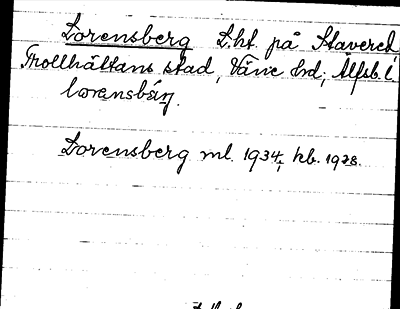 Lorensberg Lht. på Stavered,
Trollhättans stad, Väne hd, Älfsb. l.
lorensbärj.
Lorensberg ml. 1934, kb. 1928.